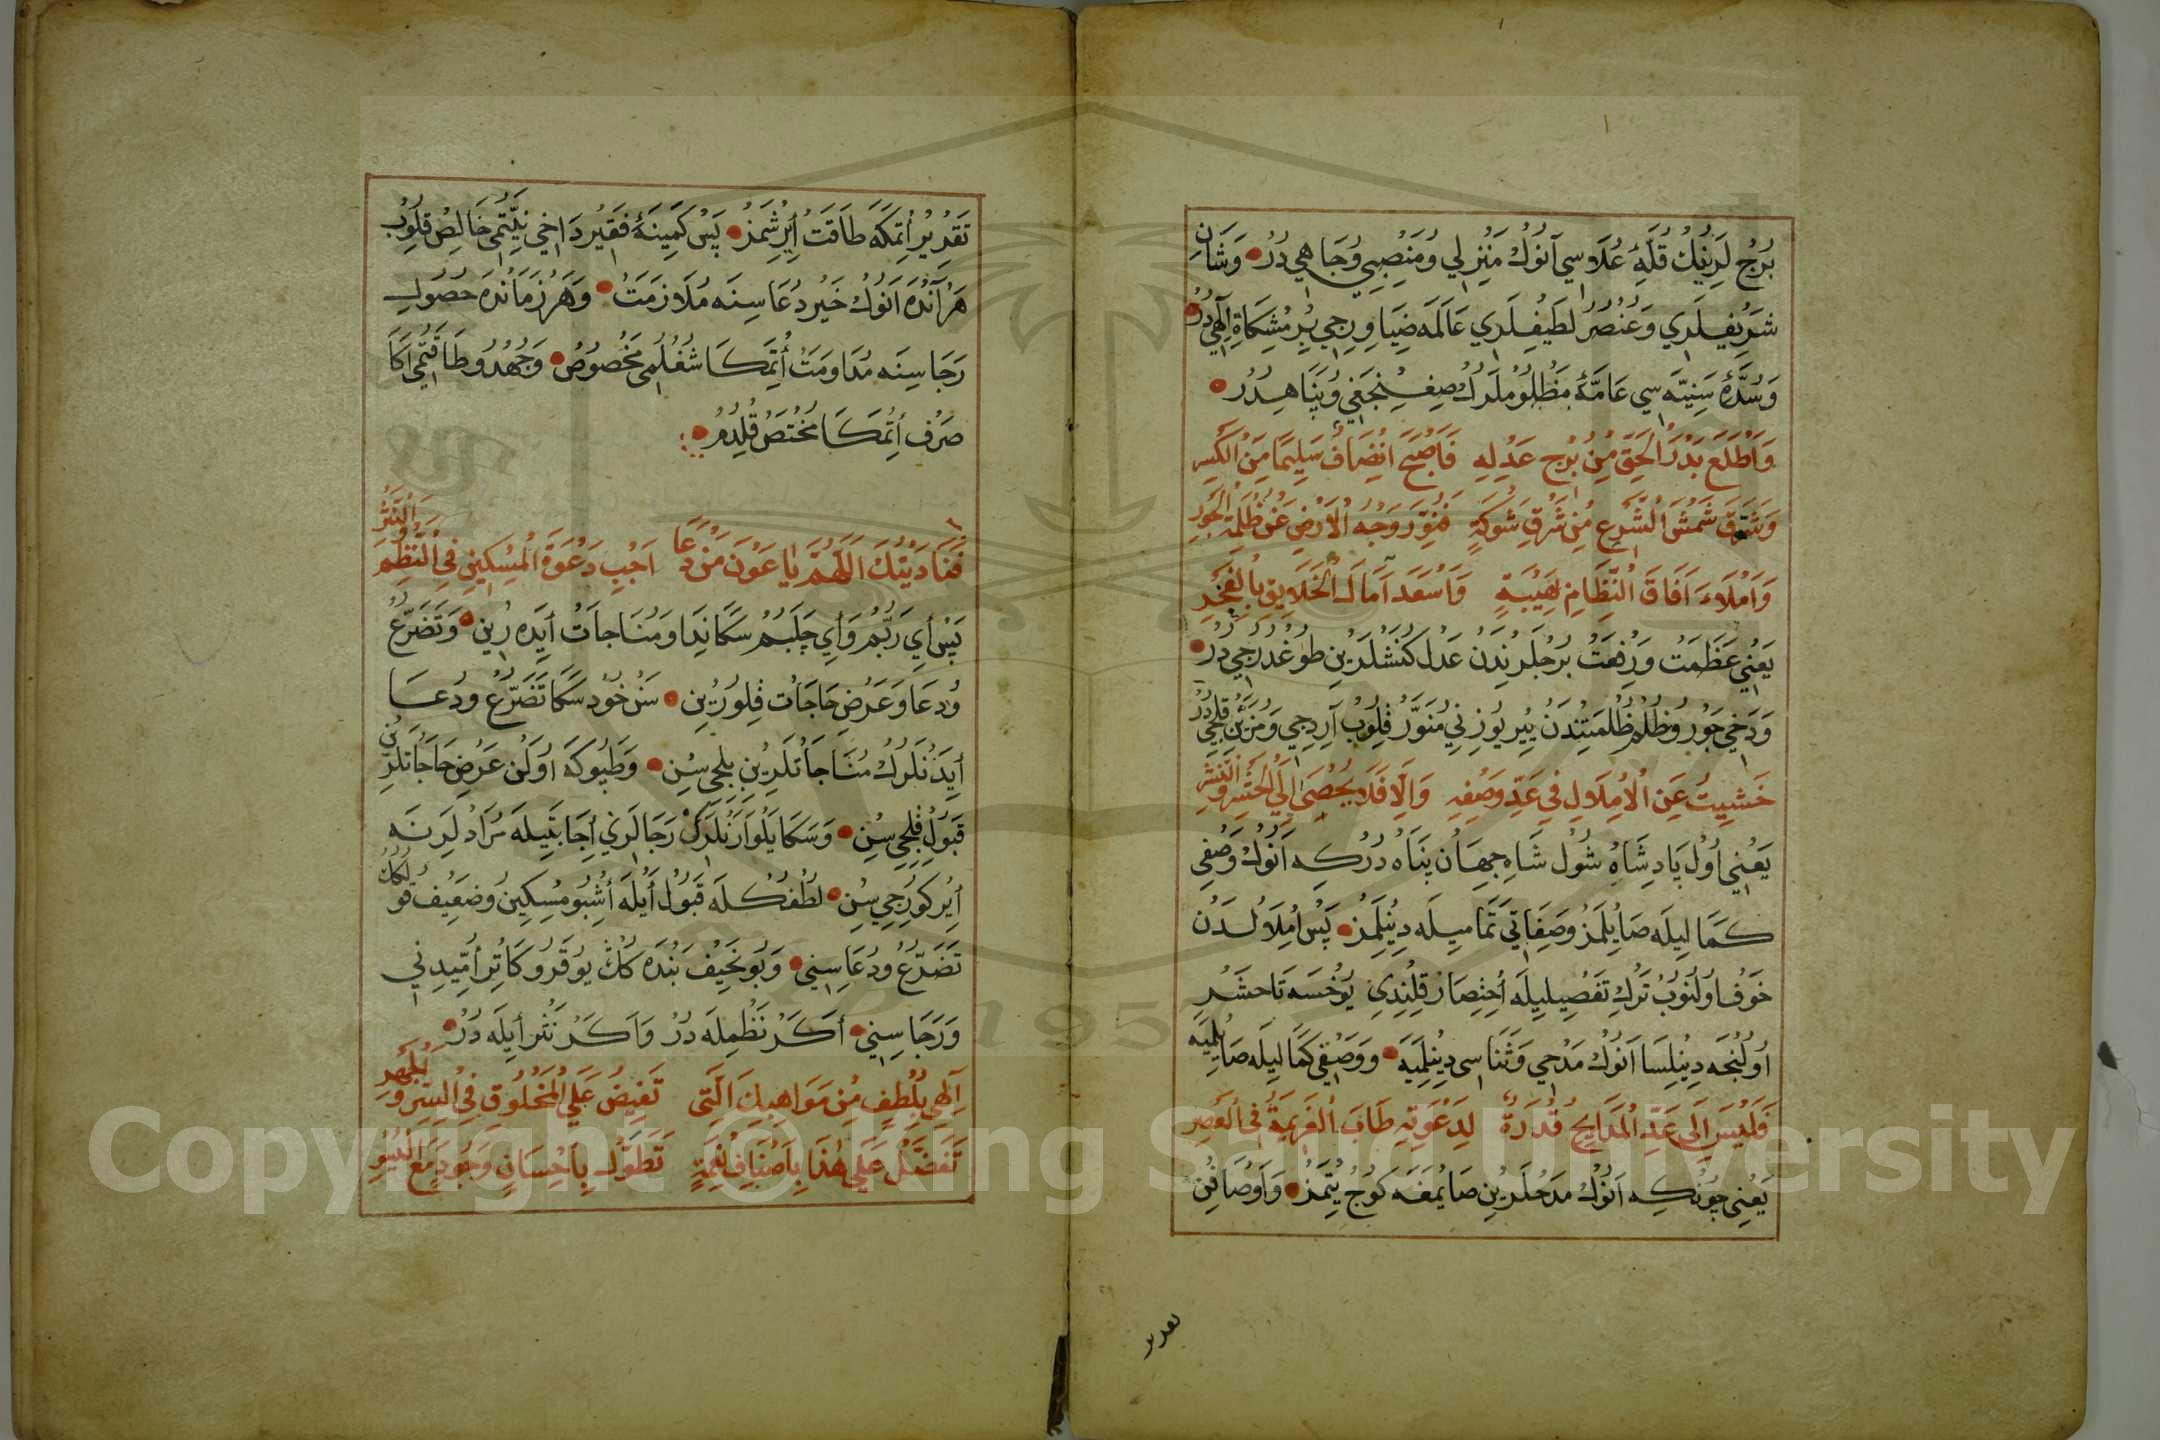 بُرْج لَرِنُكْ قُلَّۀِ عُلَاسِي آنُوكْ مَنْزِلِي وُمَنْصِبِي وُجَاهِي دُرْ وَشَانِ
شَرِيفْلَرِي وَعُنْصُرُ لَطَيفْلَرِي عَالَمَه ضِيَا وِرِجِي بِرْ مِشْكَاةِ اِلٰهِي دُرْ
وَسُدَّۀِ سَنِيَّه سِي عَامَّۀِ مَظْلُوملَرُكْ صِغِنْجَغِي وُپَنَاهِدُرْ
وَاَطْلَعَ بَدْرَ الْحَقِّ مِنْ بُرْجِ عَدْلِهِ فَاَصْبَحَ اَنْصَافُ سَلِيمًا مِنَ الْكَسِرِ
وَشَرَّقَ شَمْسَ الشَّرْعِ مِنْ شَرْقِ شَوْكَةٍ فَنَوَّرَ وَجْهَ الْاَرْضِ عَنْ ظُلْمَةِ الْجَوْرِ
وَاَمْلَاءَ اٰفَاقَ النِّظَامِ بِهَيْبَةٍ وَاَسْعَدَ اٰمَالَ الْخَلَايِقِ بِالْفَخْرِ
يَعْنِي عَظَمَتْ وَرِفْعَتْ بُرْجلَرِنْدَنْ عَدْل كُنَشْلَرِينِ طُوغْدُرِجِي دُرْ
وَدَخِي جَوْر وُظُلْم ظُلْمَتِنْدَنْ يِير يُوزِنِي مُنَوَّرْ قِلُوبْ آرِدِجِي وَمُزَيَّن قِلِجِي دُرْ
خَشِيتُ عَنِ الْاِمْلَالِ فِي عَدِّ وَصْفِهِ وَاِلَّا فَلَا يُحْصٰى اِلَى الْحَشْرِ وَالنَّشْرِ
يَعْنِي اُولْ پَادِشَاهْ شُولْ شَاهِ جِهَانْ پَنَاه دُرْكِه اَنُوكْ وَصْفِي
كَمَا لِيلَه صَايِلْمَزْ وَصِفَاتِي تَمَامِيلَه دِينِلْمَزْ پَسْ اِمْلَالدَنْ
خَوْف اُولُنُوبْ تَرْكِ تَفْصِيلِيلَه اِخْتِصَارْ قِلِنْدِي يُوخْسَه تَا حَشْرِ
اُولُنْجَه دِينِلْسَا اَنُوكْ مَدْحِي وَثَنَاسِي دِينِلْمِيَه وَوَصْفِي كَمَا لِيلَه صَايِلْمِيَه
فَلَيْسَ اِلٰى عَدِّ الْمَدَايِحِ قُدْرَةٌ لِدَعْوَتِهِ طَابَ الْعَزِيمَةُ فِي الْعَصْرِ
يَعْنِي چُونْكِه اَنُوكْ مَدْحلَرِينِ صَايْمَغَه كُوجْ يِتْمَزْ وَاَوْصَافِن
تقدير
تَقْدِيرْ اِتْمَكَه طَاقَتْ اِيرِشْمَزْ پَسْ كَمِينَۀِ فَقِيرْ دَاخِي نِيَّتُمِي خَالِصْ قِلُوبْ
هَرْ آنْدَه اَنُوكْ خَيْر دُعَاسِنَه مُلَازَمَتْ وَهَرْ زَمَانْدَه حُصُولِ
رَجَاسِنَه مُدَاوَمَتْ اِتْمَكَا شُغْلُمِي مَخْصُوصْ وَجُهْد وُطَاقَتُمِي اَكَا
صَرْف اِتْمَكَا مُخْتَصْ قِلْدُمْ
فَنَادَيْتُكَ اللّٰهُمَّ يَا عَوْنَ مَنْ دَعَا اَجِبْ دَعْوَةَ الْمِسْكِينِ فِي النَّظْمِ وَالنَّثْرِ
پَسْ اَيْ رَبُّمْ وَاَيْ چَلَبُمْ سَكَا نِدَا وَمُنَاجَاتْ اَيْدَه رِينْ وَتَضَرُّعْ
وُدُعَا وَعَرْضِ حَاجَاتْ قِلُورِينْ سَنْ خُودْ سَكَا تَضَرُّعْ وُدُعَا
اَيِدَنْلَرُكْ مُنَاجَاتْلَرِينِ بِلِجِي سِنْ وَطَپُوكَه اُولَنْ عَرْضِ حَاجَاتلَرِنِي
قَبُولْ قِلِجِي سِنْ وَسَكَا يَلْوَارَنْلَرُكْ رَجَالَرِنِي اِجَابَتِيلَه مُرَادلَرِنَه
اِيركُورِجِي سِنْ لُطْفُكْلَه قَبُولْ اَيْلَه اُشْبُو مِسْكِينْ وُضَعِيفْ قُولُكُكْ
تَضَرُّعْ وُدُعَاسِنِي وَبُو نَحِيفْ بَنْدَه كُكْ يُوقَرُو كَاتُرْ اُمِّيدِنِي
وَرَجَاسِنِي اَكَرْ نَظْمِلَه دُرْ وَاَكَرْ نَثْر اِيلَه دُرْ
اِلٰهِي بِلُطْفٍ مِنْ مَوَاهِبِكَ الَّتِي تَفِيضُ عَلَى الْمَخْلُوقِ فِي السِّرِّ وَالْجَهْرِ
تَفَضَّلْ عَلٰى هٰذَا بِاَصْنَافِ نِعْمَةٍ تَطَوَّلْ بِاِحْسَانٍ وَجُودٍ مَعَ الْيُسْرِ
Copyright © King Saud University
1957